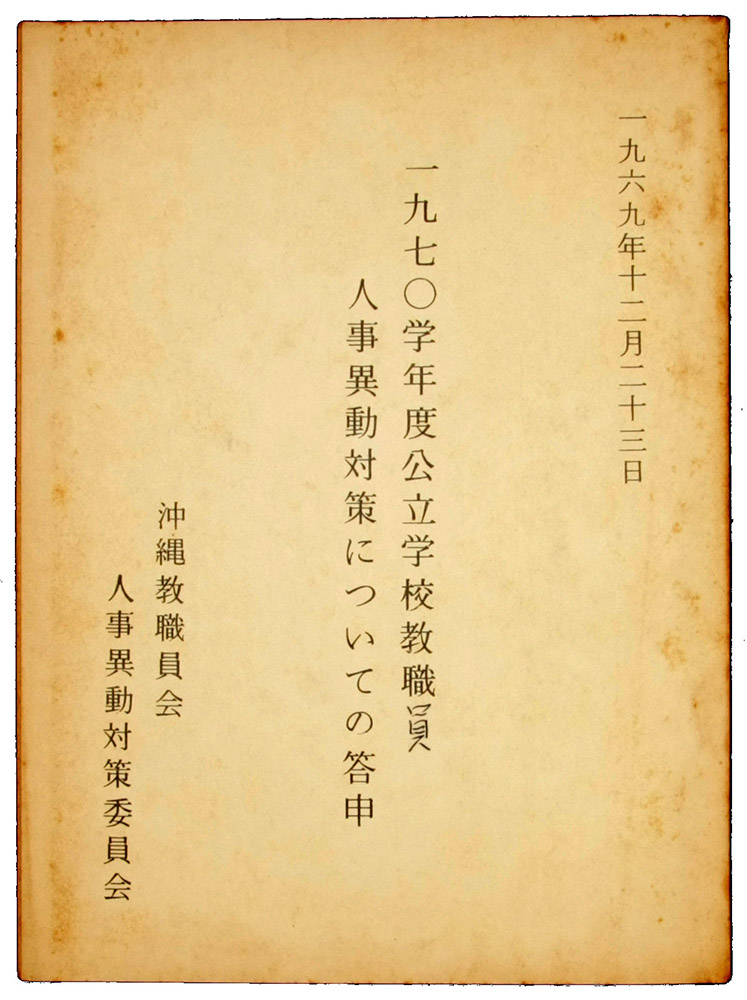 一九六九年十二月二十三日
一九七〇学年度公立学校教職員
人事異動対策についての答申
沖縄教職員会
人事異動対策委員会